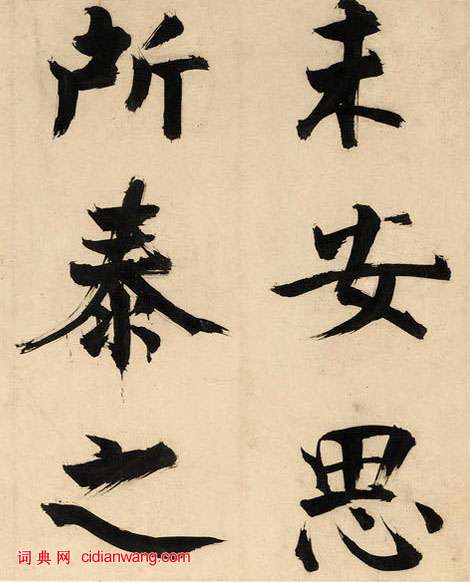 未安思
所泰之
词典网 cidianwang.com